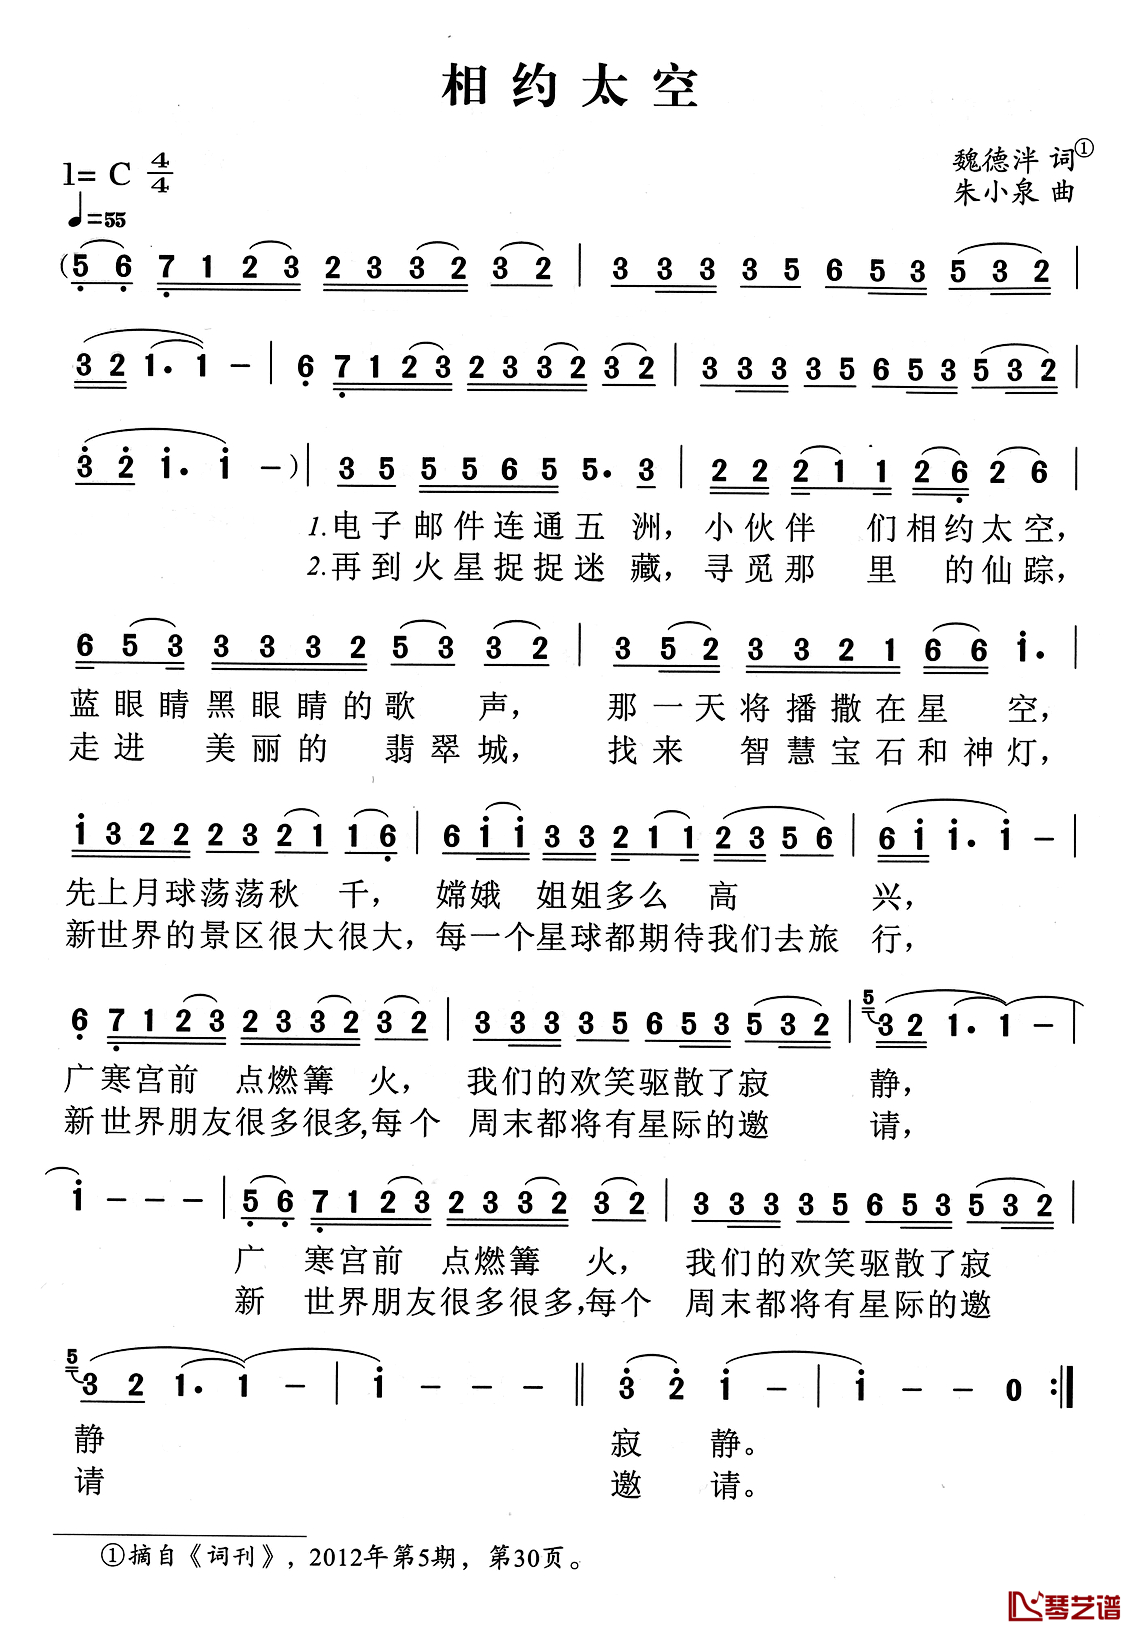 相约太空
1= C 4/4
♩=55
魏德泮 词①
朱小泉 曲
(5 6 7 1 2 3 2 3 3 2 3 2 | 3 3 3 3 5 6 5 3 5 3 2 |
3 2 1· 1 – | 6 7 1 2 3 2 3 3 2 3 2 | 3 3 3 3 5 6 5 3 5 3 2 |
3 2 1· 1 –) | 3 5 5 5 6 5 5· 3 | 2 2 2 1 1 2 6 2 6 |
1.电子邮件连通五 洲，小伙伴 们相约太空，
2.再到火星捉捉迷 藏，寻觅那 里 的仙踪，
6 5 3 3 3 3 2 5 3 3 2 | 3 5 2 3 3 2 1 6 6 1· |
蓝眼睛黑眼睛的歌 声， 那一天将播撒在星 空，
走进 美丽的 翡翠城， 找来 智慧宝石和神灯，
1 3 2 2 2 3 2 1 1 6 | 6 1 1 3 3 2 1 1 2 3 5 6 | 6 1 1· 1 – |
先上月球荡荡秋 千， 嫦娥 姐姐多么 高 兴，
新世界的景区很大很大，每一个星球都期待我们去旅 行，
6 7 1 2 3 2 3 3 2 3 2 | 3 3 3 3 5 6 5 3 5 3 2 | 5 3 2 1· 1 – |
广寒宫前 点燃篝 火， 我们的欢笑驱散了寂 静，
新世界朋友很多很多，每个 周末都将有星际的邀 请，
1 – – – | 5 6 7 1 2 3 2 3 3 2 3 2 | 3 3 3 3 5 6 5 3 5 3 2 |
广 寒宫前 点燃篝 火， 我们的欢笑驱散了寂
新 世界朋友很多很多，每个 周末都将有星际的邀
5 3 2 1· 1 – | 1 – – – ‖ 3 2 1 – | 1 – – 0 :‖
静 寂 静。
请 邀 请。
①摘自《词刊》，2012年第5期，第30页。
琴艺谱